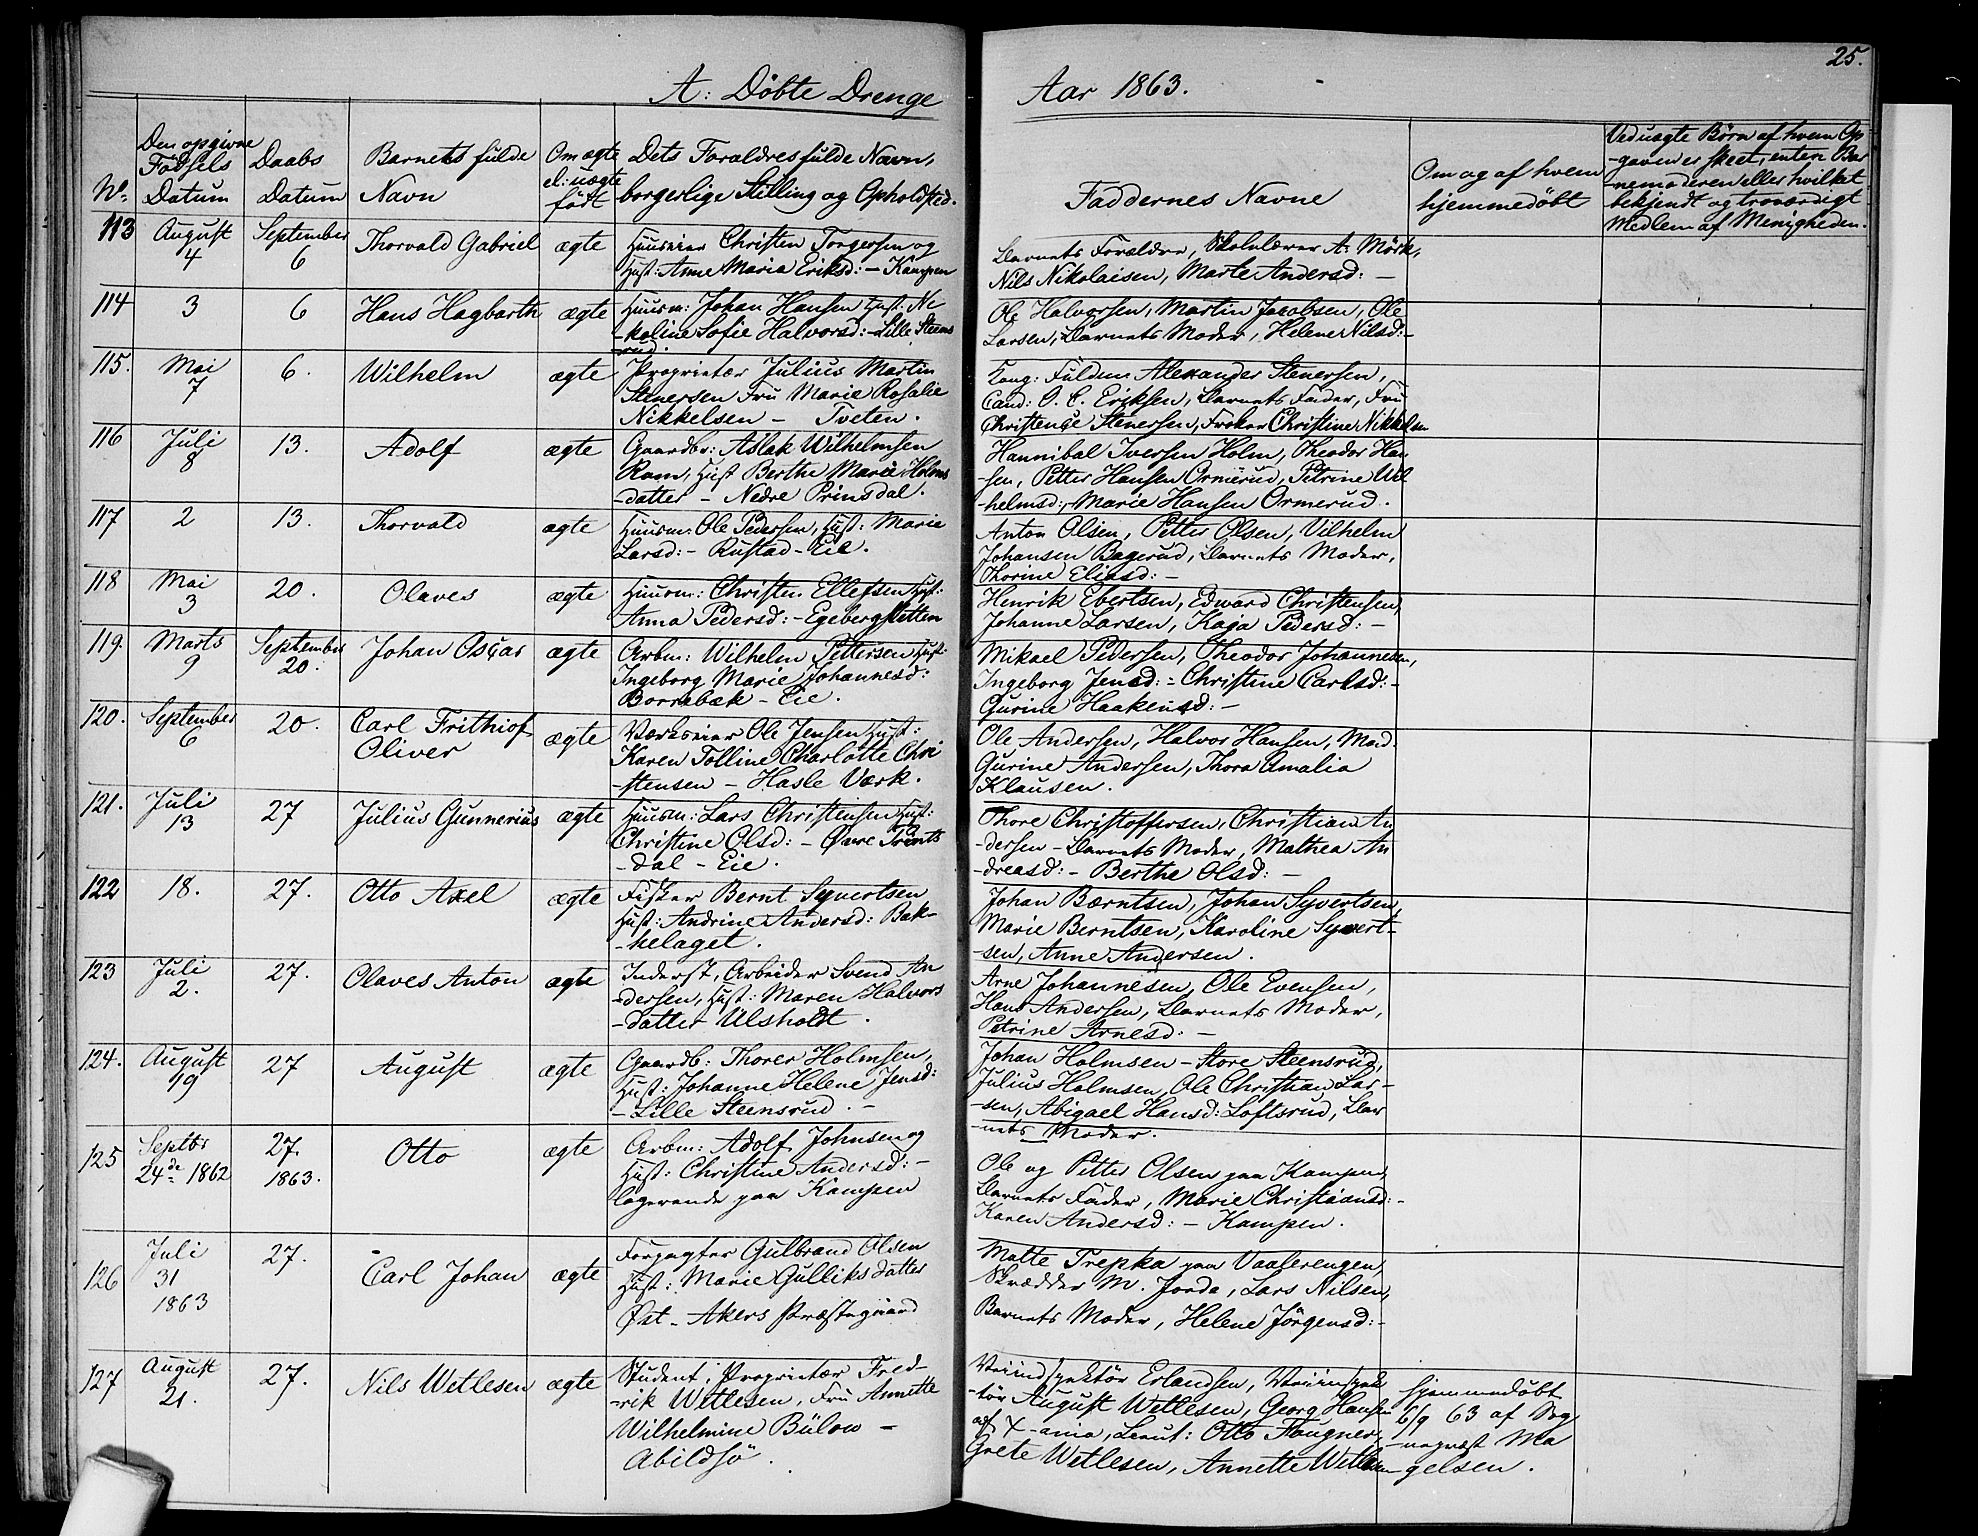 25.
A: Döbte Drenge
Aar 1863.
No.
Den opgivne Födsels Datum
Daabs Datum
Barnets fulde Navn
Om ægte el: uægte född
Dets Foraldres fulde Navn, borgerlige Stilling og Opholdsted.
Faddernes Navne
Om og af hvem hjemmedöbt
Ved uægte Börn af hvem Op-
-gaven er skeet, enten Bar
-nemoderen eller hvilket
bekjendt og troværdigt
Medlem af Menigheden.
113 August 4 September 6 Thorvald Gabriel ægte
Huuseier Christen Torgersen og
Hust: Anne Maria Eriksd: - Kampen
Barnets Forældre, Skolelærer A. Mörk,
Nils Nikolaisen, Marte Andersd: -
114 3 6 Hans Hagbarth ægte
Huusm: Johan Hansen Hust: Ni-
-koline Sofie Halvorsd: - Lille Steens
rud.
Ole Halvorsen, Martin Jacobsen, Ole
Larsen, Barnets Moder, Helene Nilsd: -
115. Mai 7 6. Wilhelm ægte
Proprietær Julius Martin
Stenersen Fru Marie Rosalie
Nikkelsen - Tveten.
Kong: Fuldm Alexander Stenersen,
Cand: O. C. Eriksen, Barnets Fader, Fru
Christence Stenersen, Frøken Christine Nikkelsen
116 Juli 8 13. Adolf ægte
Gaardbr: Aslak Wilhelmsen
Ram, Hust Berthe Marie Holms
-datter - Nedre Prinsdal.
Hannibal Iversen Holm, Theodor Han
-sen, Petter Hansen Ormerud, Petrine Wil
-helmsd:, Marie Hansen Ormerud.
117 2 13. Thorvald ægte
Huusm: Ole Pedersen, Hust: Marie
Larsd: - Rustad - Eie.
Anton Olsen, Petter Olsen, Vilhelm
Johansen Bagerud, Barnets Moder,
Thorine Eliasd: -
118 Mai 3 20. Olaves ægte
Huusm: Christen Ellefsen Hust:
Anna Pedersd: - Egebergsletten
Henrik Ebertsen, Edward Christensen,
Johanne Larsen, Kaja Pedersd: -
119. Marts 9 September 20. Johan Oscar ægte
Arbm: Wilhelm Pettersen Hust:
Ingeborg Marie Johannesd:
Borrebæk - Eie.
Mikael Pedersen, Theodor Johannesen,
Ingeborg Jensd: - Christine Carlsd: -
Gurine Haakensd: -
120. September 6 20. Carl Frithiof Oliver ægte
Værkseier Ole Jensen Hust:
Karen Tolline Charlotte Chri
-stensen - Hasle Værk.
Ole Andersen, Halvor Hansen, Mad.
Gurine Andersen, Thora Amalia
Klausen.
121. Juli 13 27 Julius Gunnerius ægte
Huusm: Lars Christensen Hust:
Christine Olsd: - Øvre Prints
-dal - Eie.
Thore Christoffersen, Christian An
-dersen - Barnets Moder, Mathea An
-dreasd: - Berthe Olsd: -
122 18. 27. Otto Axel ægte
Fisker Bernt Syvertsen
Hust: Andrine Andersd: Bæk-
-kelaget.
Johan Bærntsen, Johan Syvertsen,
Marie Berntsen, Karoline Syvert-
-sen, Anne Andersen.
123 Juli 2. 27. Olaves Anton ægte
Inderst, Arbeider Svend An
-dersen, Hust: Maren Halvors
-datter Ulsholdt.
Arne Johannesen, Ole Evensen,
Hans Andersen, Barnets Moder,
Petrine Arnesd: -
124. August 19 27 August ægte
Gaardb: Thorer Holmsen,
Hust: Johanne Helene Jensd:
- Lille Steensrud. -
Johan Holmsen - Store Steensrud,
Julius Holmsen, Ole Christian Lar-
-sen, Abigael Hansd: Loftsrud, Bar
-nets Moder.
125 Septbr 24de 1862 27. 1863. Otto ægte
Arbm: Adolf Johnsen og
Hust: Christine Andersd: -
logerende paa Kampen
Ole og Petter Olsen paa Kampen,
Barnets Fader, Marie Christiansd: -
Karen Andersd: - Kampen.
126 Juli 31 1863 27. Carl Johan ægte
Forpagter Gulbrand Olsen
Hust: Marie Gulliksdatter
Øst - Akers Præstegaard
Matte Trepka paa Vaalerengen,
Skrædder M. Jorda, Lars Nilsen,
Barnets Moder, Helene Jörgensd: -
127 August 21. 27. Nils Wetlesen ægte
Student, Proprietær Fred-
-rik Wetlesen, Fru Annette
Wilhelmine Bülow -
Abildsö.
Veiindspektör Erlandsen, Veiinspek
-tör August Wetlesen, Georg Hansen
af X-ania, Lieut: Otto Faugner,
Grete Wetlesen, Annette Wetlesen
hjemmedöbt
6/9 63 af Sog
-nepræst Ma
gelsen.